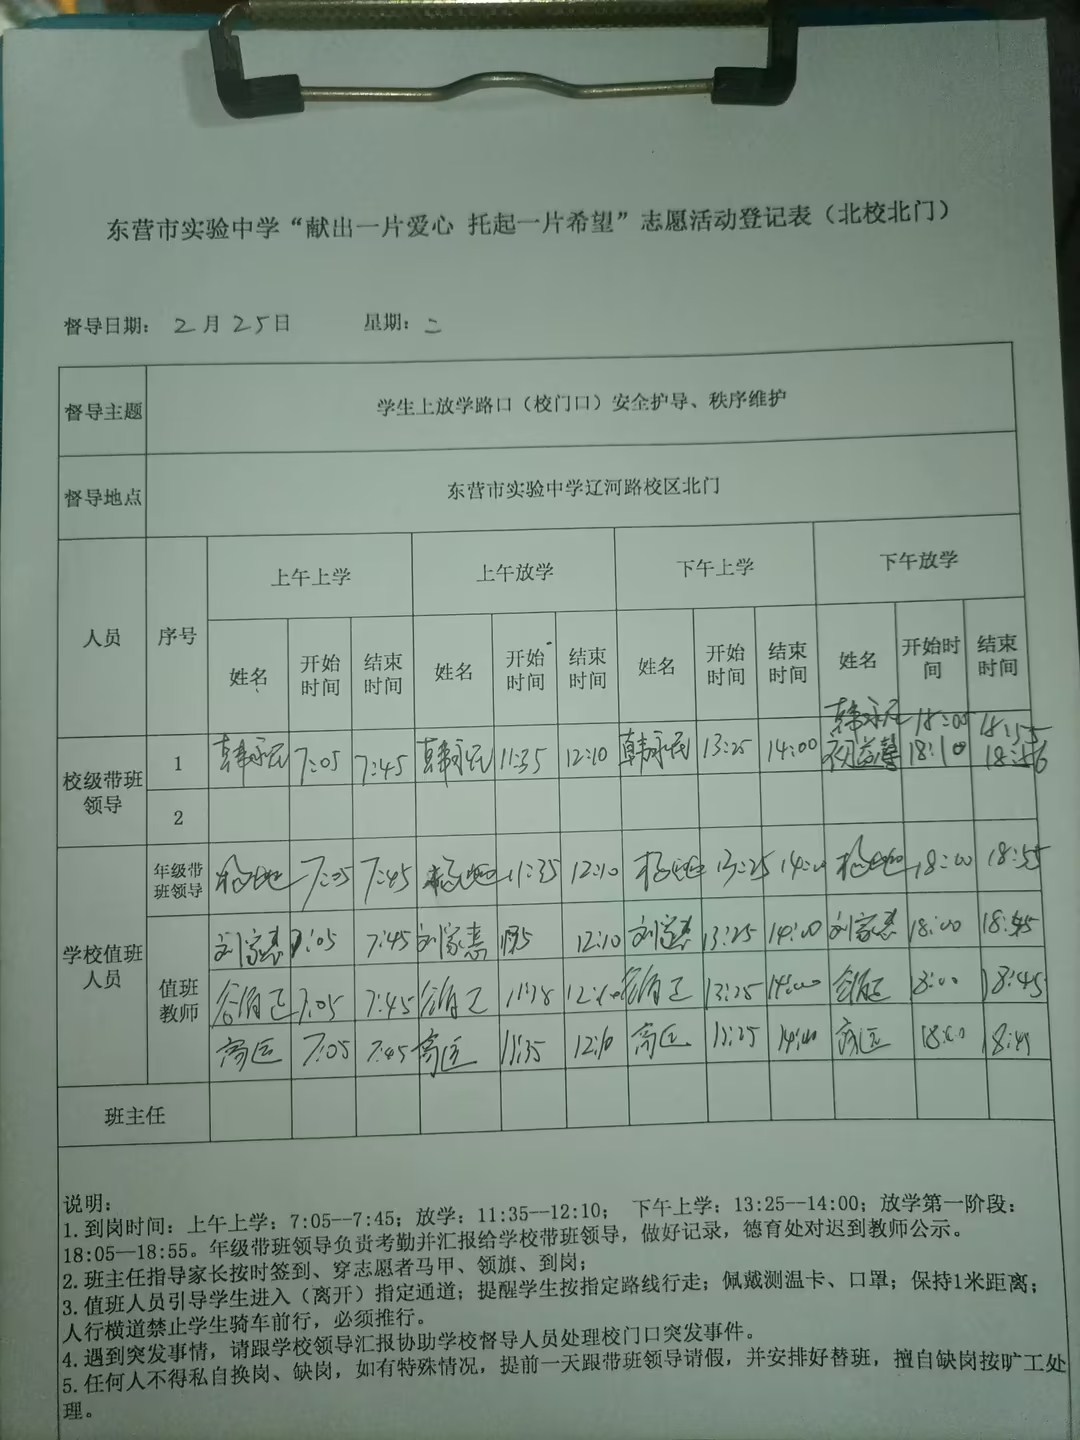 东营市实验中学“献出一片爱心 托起一片希望”志愿活动登记表（北校北门）
督导日期： 2月25日 星期：二
督导主题 学生上放学路口（校门口）安全护导、秩序维护
督导地点 东营市实验中学辽河路校区北门
人员 序号 上午上学 上午放学 下午上学 下午放学
姓名 开始时间 结束时间 姓名 开始时间 结束时间 姓名 开始时间 结束时间 姓名 开始时间 结束时间
韩永民 18:05 18:55
校级带班领导 1 韩永民 7:05 7:45 韩永民 11:35 12:10 韩永民 13:25 14:00 18:10 18:56
2
学校值班人员 年级带班领导 7:05 7:45 11:35 12:10 13:25 14:00 18:00 18:55
值班教师 刘家惠 7:05 7:45 刘家惠 12:10 刘家惠 13:25 14:00 刘家惠 18:00 18:45
7:05 7:45 12:10 13:25 14:00 18:00 18:45
高匡 7:05 7:45 高匡 11:35 12:10 高匡 13:25 14:00 高匡 18:00 18:45
班主任
说明：
1.到岗时间：上午上学：7:05--7:45；放学：11:35--12:10； 下午上学：13:25--14:00；放学第一阶段：
18:05--18:55。年级带班领导负责考勤并汇报给学校带班领导，做好记录，德育处对迟到教师公示。
2.班主任指导家长按时签到、穿志愿者马甲、领旗、到岗；
3.值班人员引导学生进入（离开）指定通道；提醒学生按指定路线行走；佩戴测温卡、口罩；保持1米距离；
人行横道禁止学生骑车前行，必须推行。
4.遇到突发事情，请跟学校领导汇报协助学校督导人员处理校门口突发事件。
5.任何人不得私自换岗、缺岗，如有特殊情况，提前一天跟带班领导请假，并安排好替班，擅自缺岗按旷工处
理。